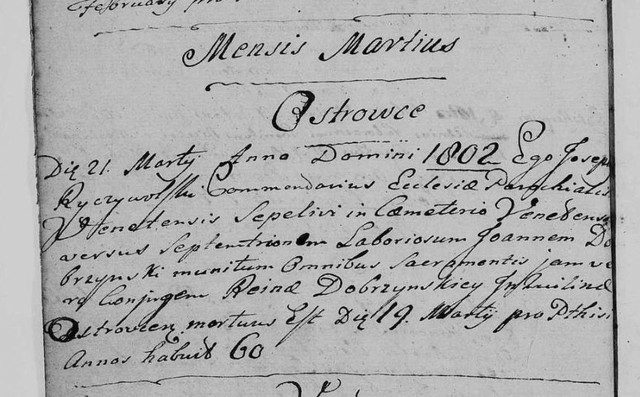 February pro
Mensis Martius
Ostrowce
Die 21. Martij Anno Domini 1802 Ego Josep
Ryczywolski Commendarius Ecclesiæ Parochialis
Venetensis Sepelivi in Cæmeterio Venetensi
versus Septemtrionem Laboriosum Joannem Do
brzynski munitum Omnibus Sacramentis jam ve
ro Conjugem Reinæ Dobrzynskiey Inquilinæ
Ostrowzen mortuus Est Die 19. Martij pro Pthisi
Annos habuit 60